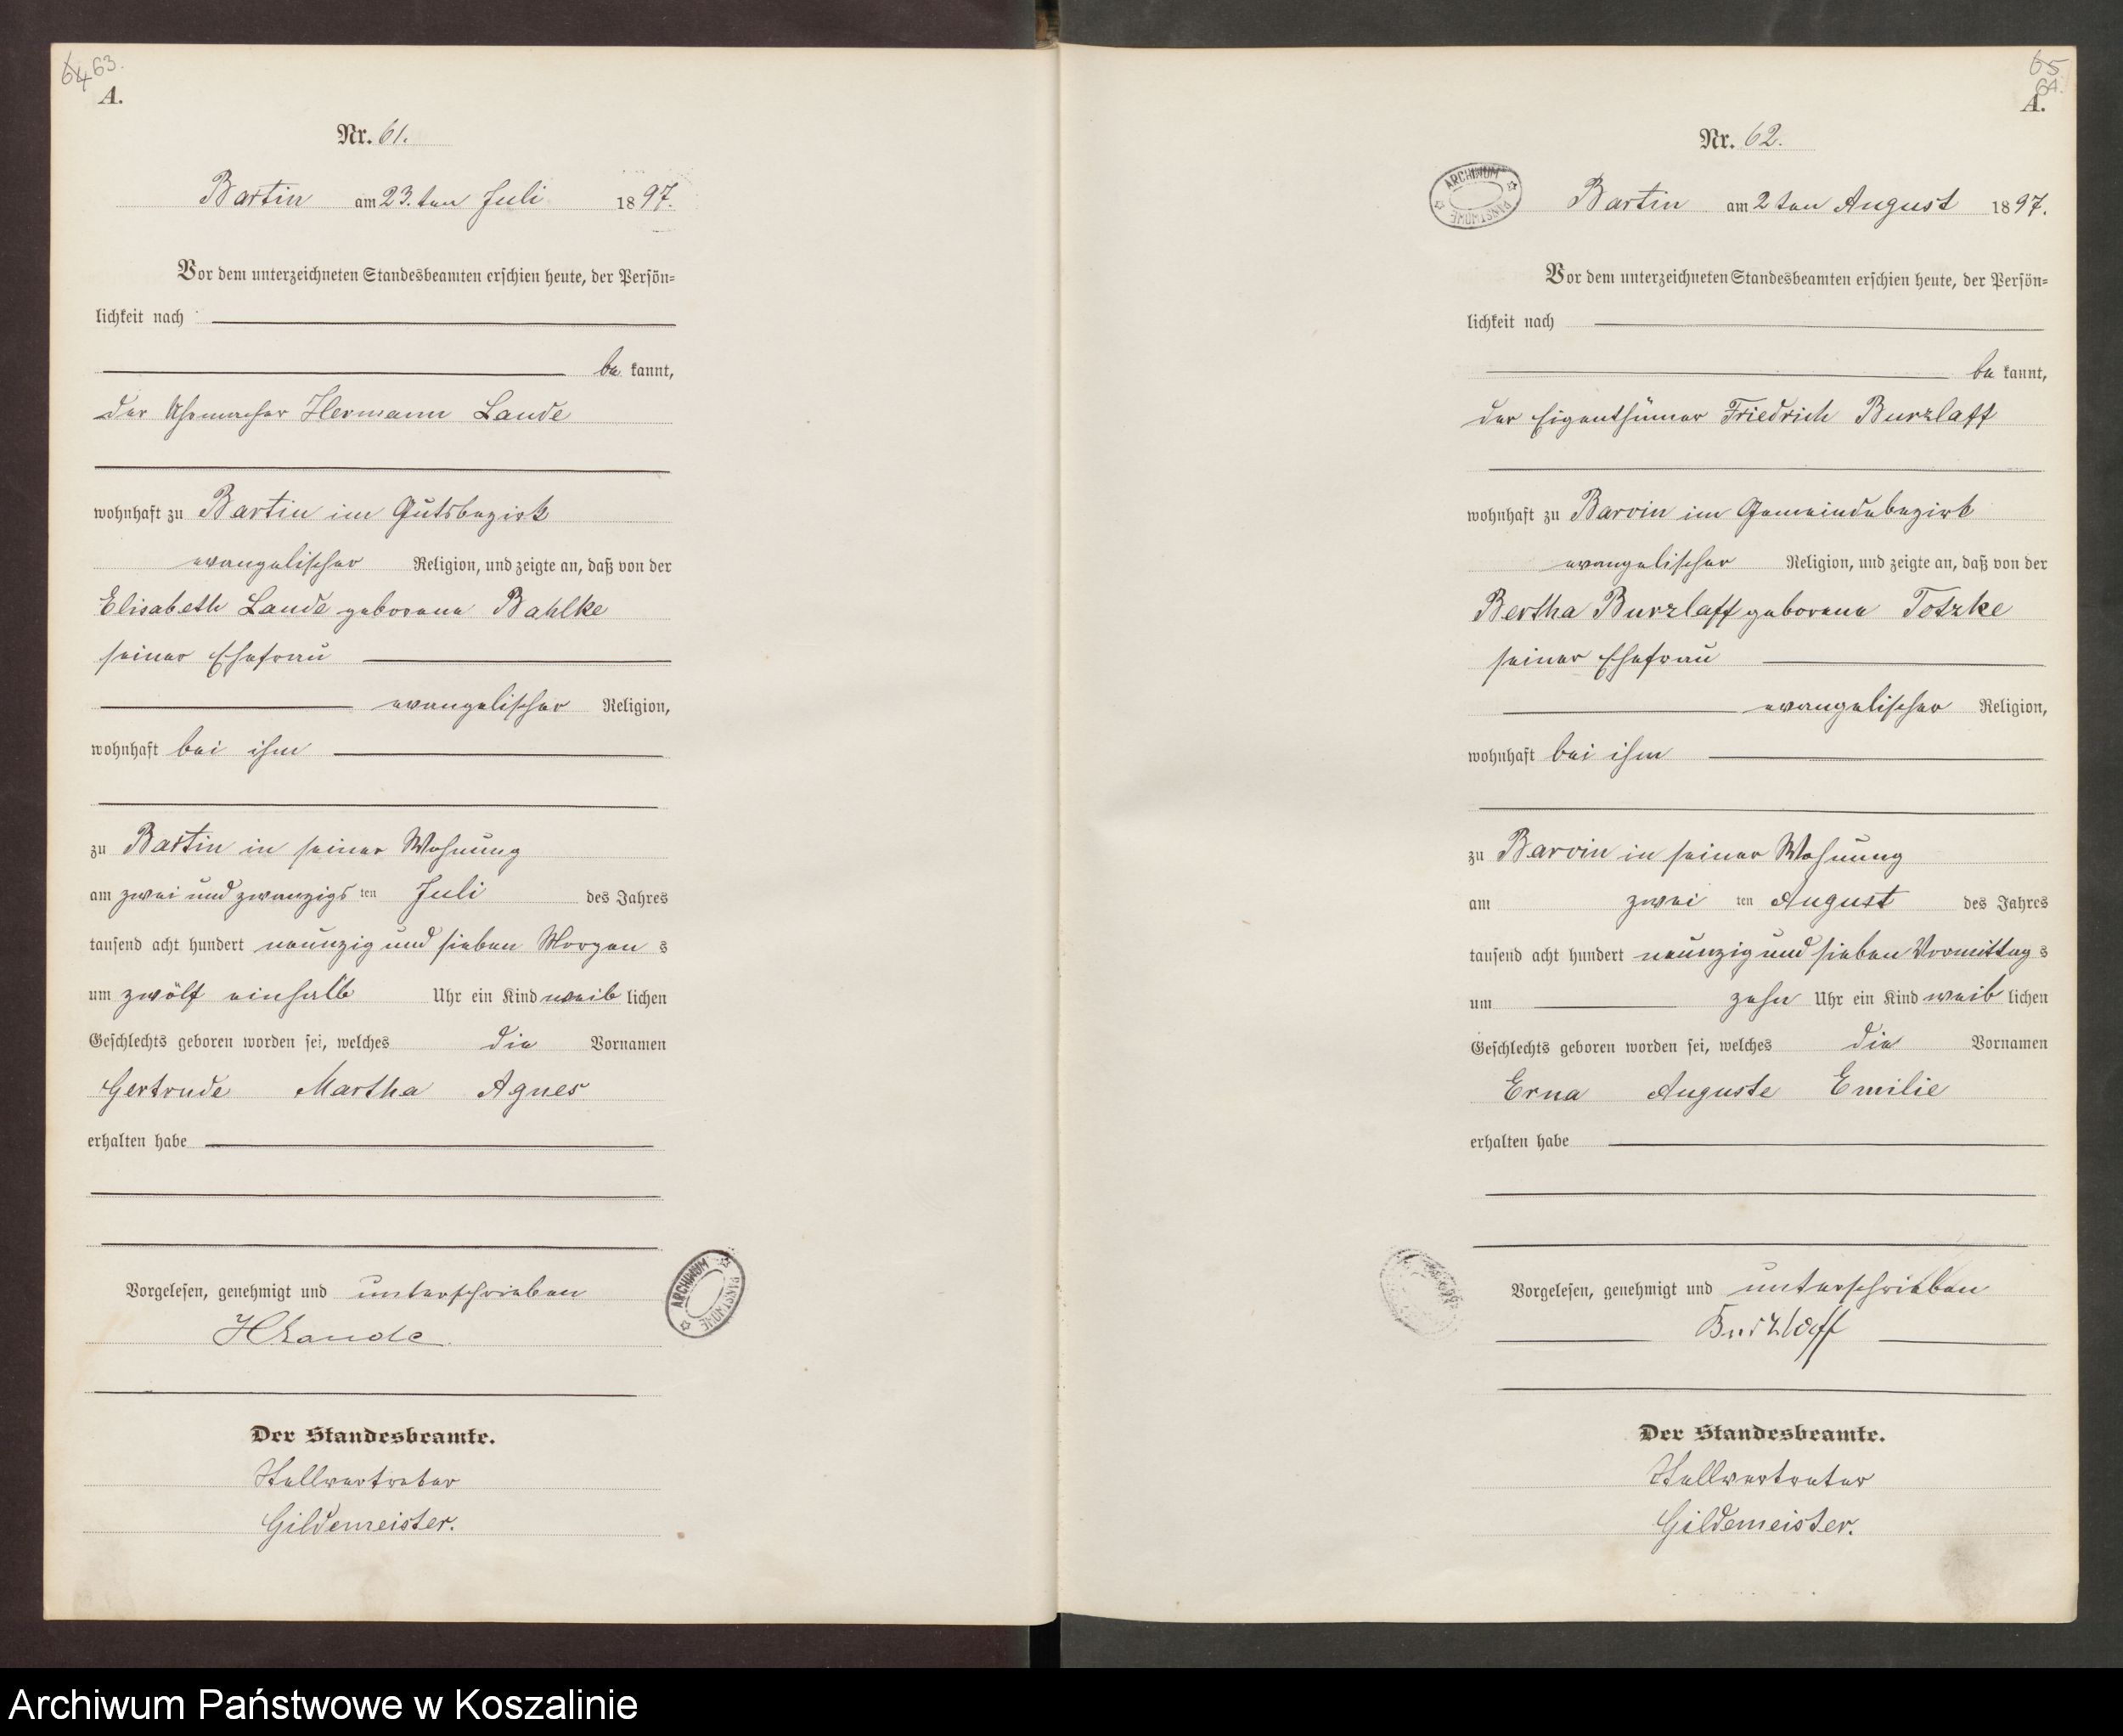 64 63.
A.
Nr. 61.
Bartin am 23. ten Juli 1897.
Vor dem unterzeichneten Standesbeamten erschien heute, der Persön=
lichkeit nach
be kannt,
der Uhrmacher Hermann Lande
wohnhaft zu Bartin im Gutsbezirk
evangelischer Religion, und zeigte an, daß von der
Elisabeth Lande geborene Bahlke
seiner Ehefrau
evangelischer Religion,
wohnhaft bei ihm
zu Bartin in seiner Wohnung
am zwei und zwanzigs ten Juli des Jahres
tausend acht hundert neunzig und sieben Morgen s
um zwölf einhalb Uhr ein Kind weib lichen
Geschlechts geboren worden sei, welches die Vornamen
Gertrude Martha Agnes
erhalten habe
Vorgelesen, genehmigt und unterschrieben
H Lande
Der Standesbeamte.
Stellvertreter
Gildemeister.
ARCHIWUM PAŃSTWOWE
65
64.
A.
Nr. 62.
ARCHIWUM PAŃSTWOWE
Bartin am 2 ten August 1897.
Vor dem unterzeichneten Standesbeamten erschien heute, der Persön=
lichkeit nach
be kannt,
der Eigenthümer Friedrich Burzlaff
wohnhaft zu Barvin im Gemeindebezirk
evangelischer Religion, und zeigte an, daß von der
Bertha Burzlaff geborene Totzke
seiner Ehefrau
evangelischer Religion,
wohnhaft bei ihm
zu Barvin in seiner Wohnung
am zwei ten August des Jahres
tausend acht hundert neunzig und sieben Vormittag s
um zehn Uhr ein Kind weib lichen
Geschlechts geboren worden sei, welches die Vornamen
Erna Auguste Emilie
erhalten habe
Vorgelesen, genehmigt und unterschrieben
Burzlaff
Der Standesbeamte.
Stellvertreter
Gildemeister.
Archiwum Państwowe w Koszalinie